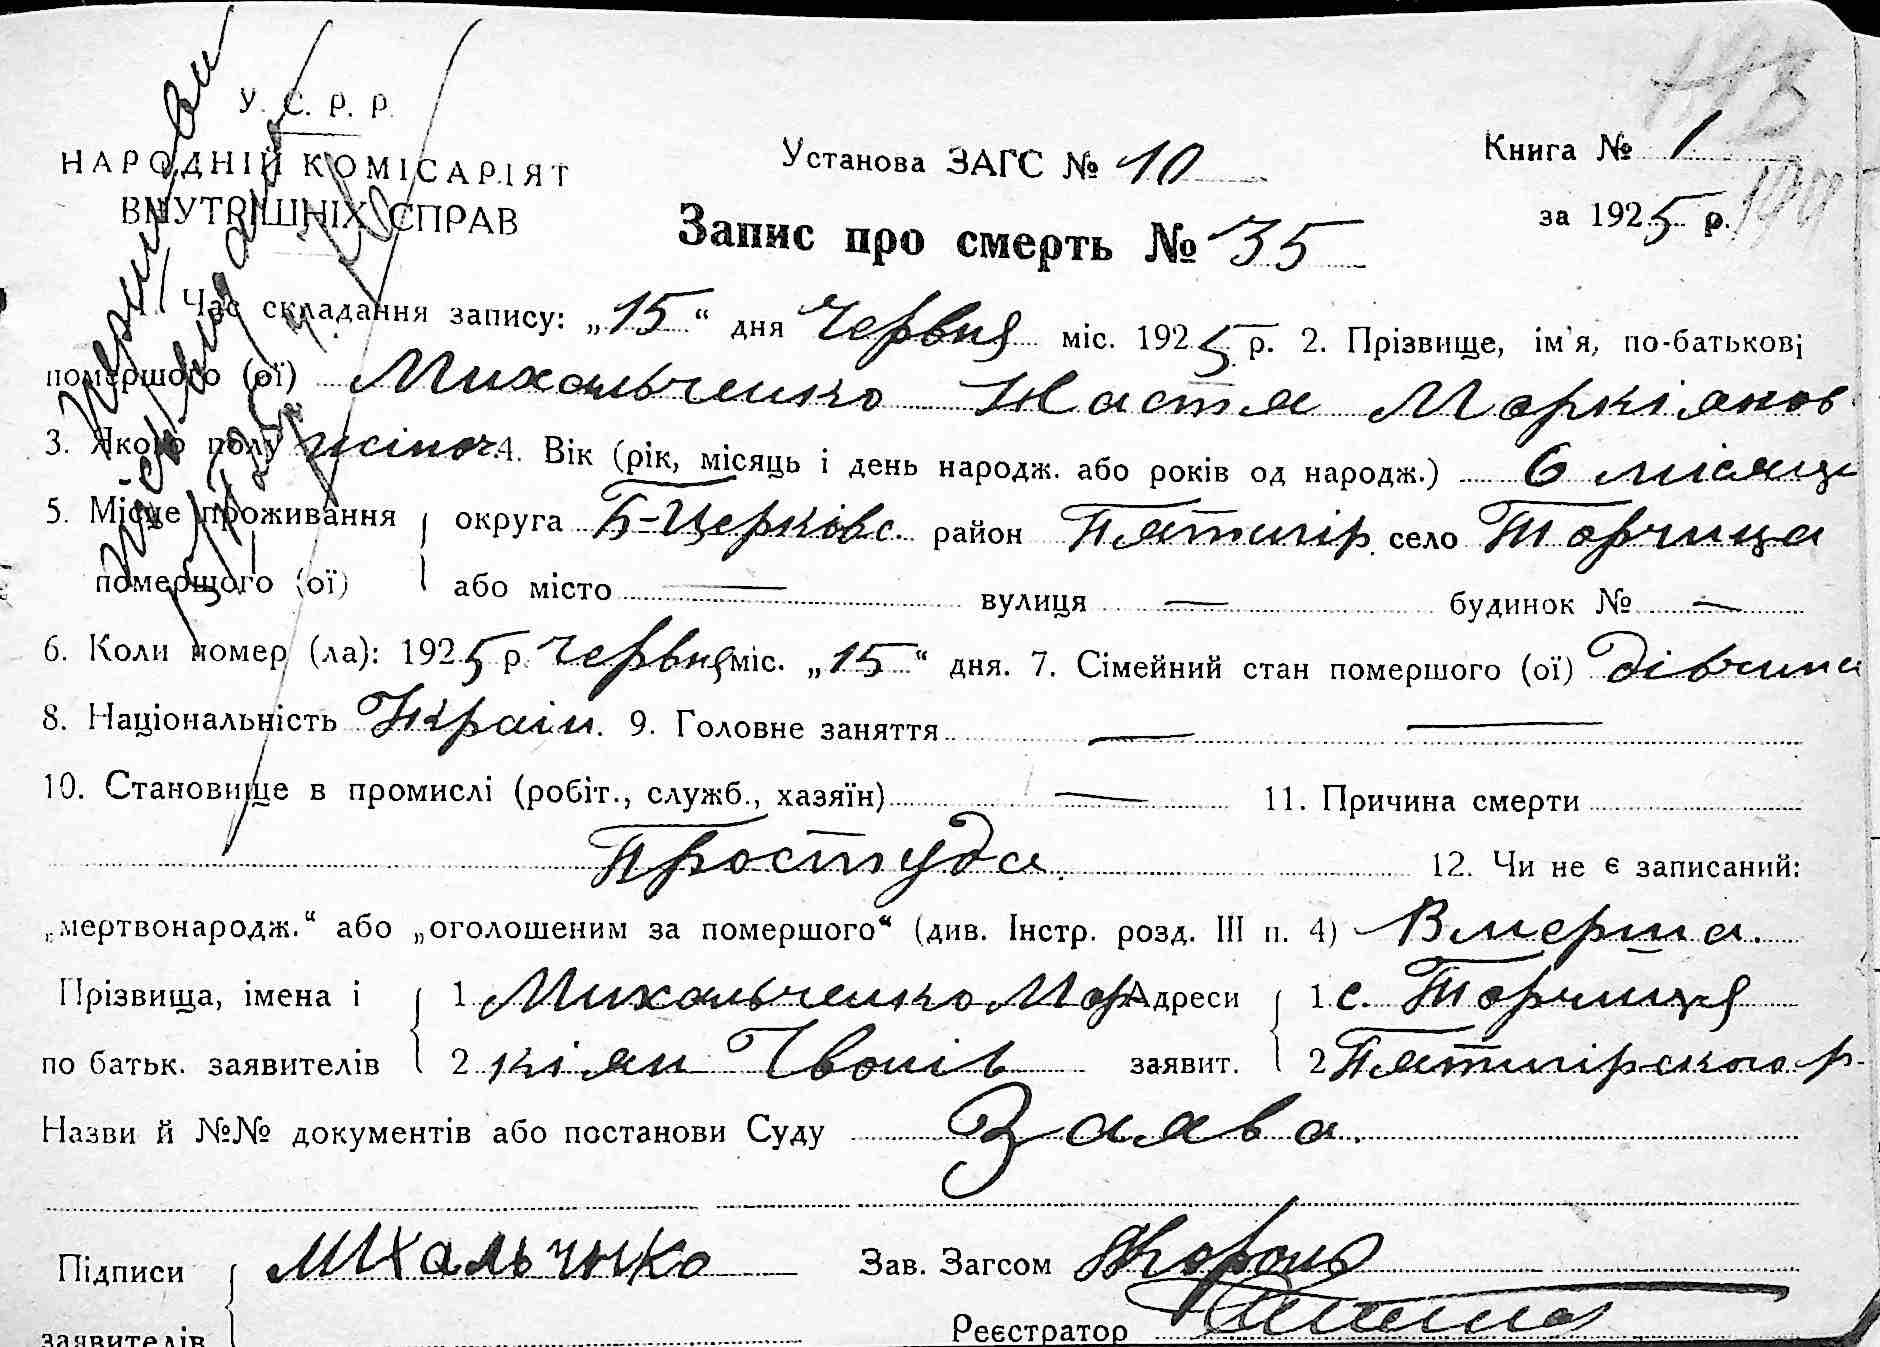 У. С. Р. Р.
НАРОДНІЙ КОМІСАРІЯТ
ВНУТРІШНІХ СПРАВ
Установа ЗАГС № 10
Книга № 1
за 1925 р.
Запис про смерть № 35
1. Час складання запису: „15“ дня Червня міс. 1925 р. 2. Прізвище, ім'я, по-батькові
помершого (ої) Михальченко Настя Маркіянов
3. Якого полу жіноч. 4. Вік (рік, місяць і день народж. або років од народж.) 6 місяци
5. Місце проживання помершого (ої) округа Б-Церківс. район Пятигір. село Торчица
або місто — вулиця — будинок № —
6. Коли помер (ла): 1925 р. Червня міс. „15“ дня. 7. Сімейний стан помершого (ої) дівчина
8. Національність Украін. 9. Головне заняття — —
10. Становище в промислі (робіт., служб., хазяїн) — 11. Причина смерти
Простуда. 12. Чи не є записаний:
„мертвонародж.“ або „оголошеним за помершого“ (див. Інстр. розд. III п. 4) Вмерша.
Прізвища, імена і 1 Михальченко Мар- Адреси 1 с. Торчиця
по батьк. заявителів 2 кіян Івонів заявит. 2 Пятигірского р.
Назви й №№ документів або постанови Суду Заява.
Підписи Михальчнко Зав. Загсом
заявителів Реєстратор